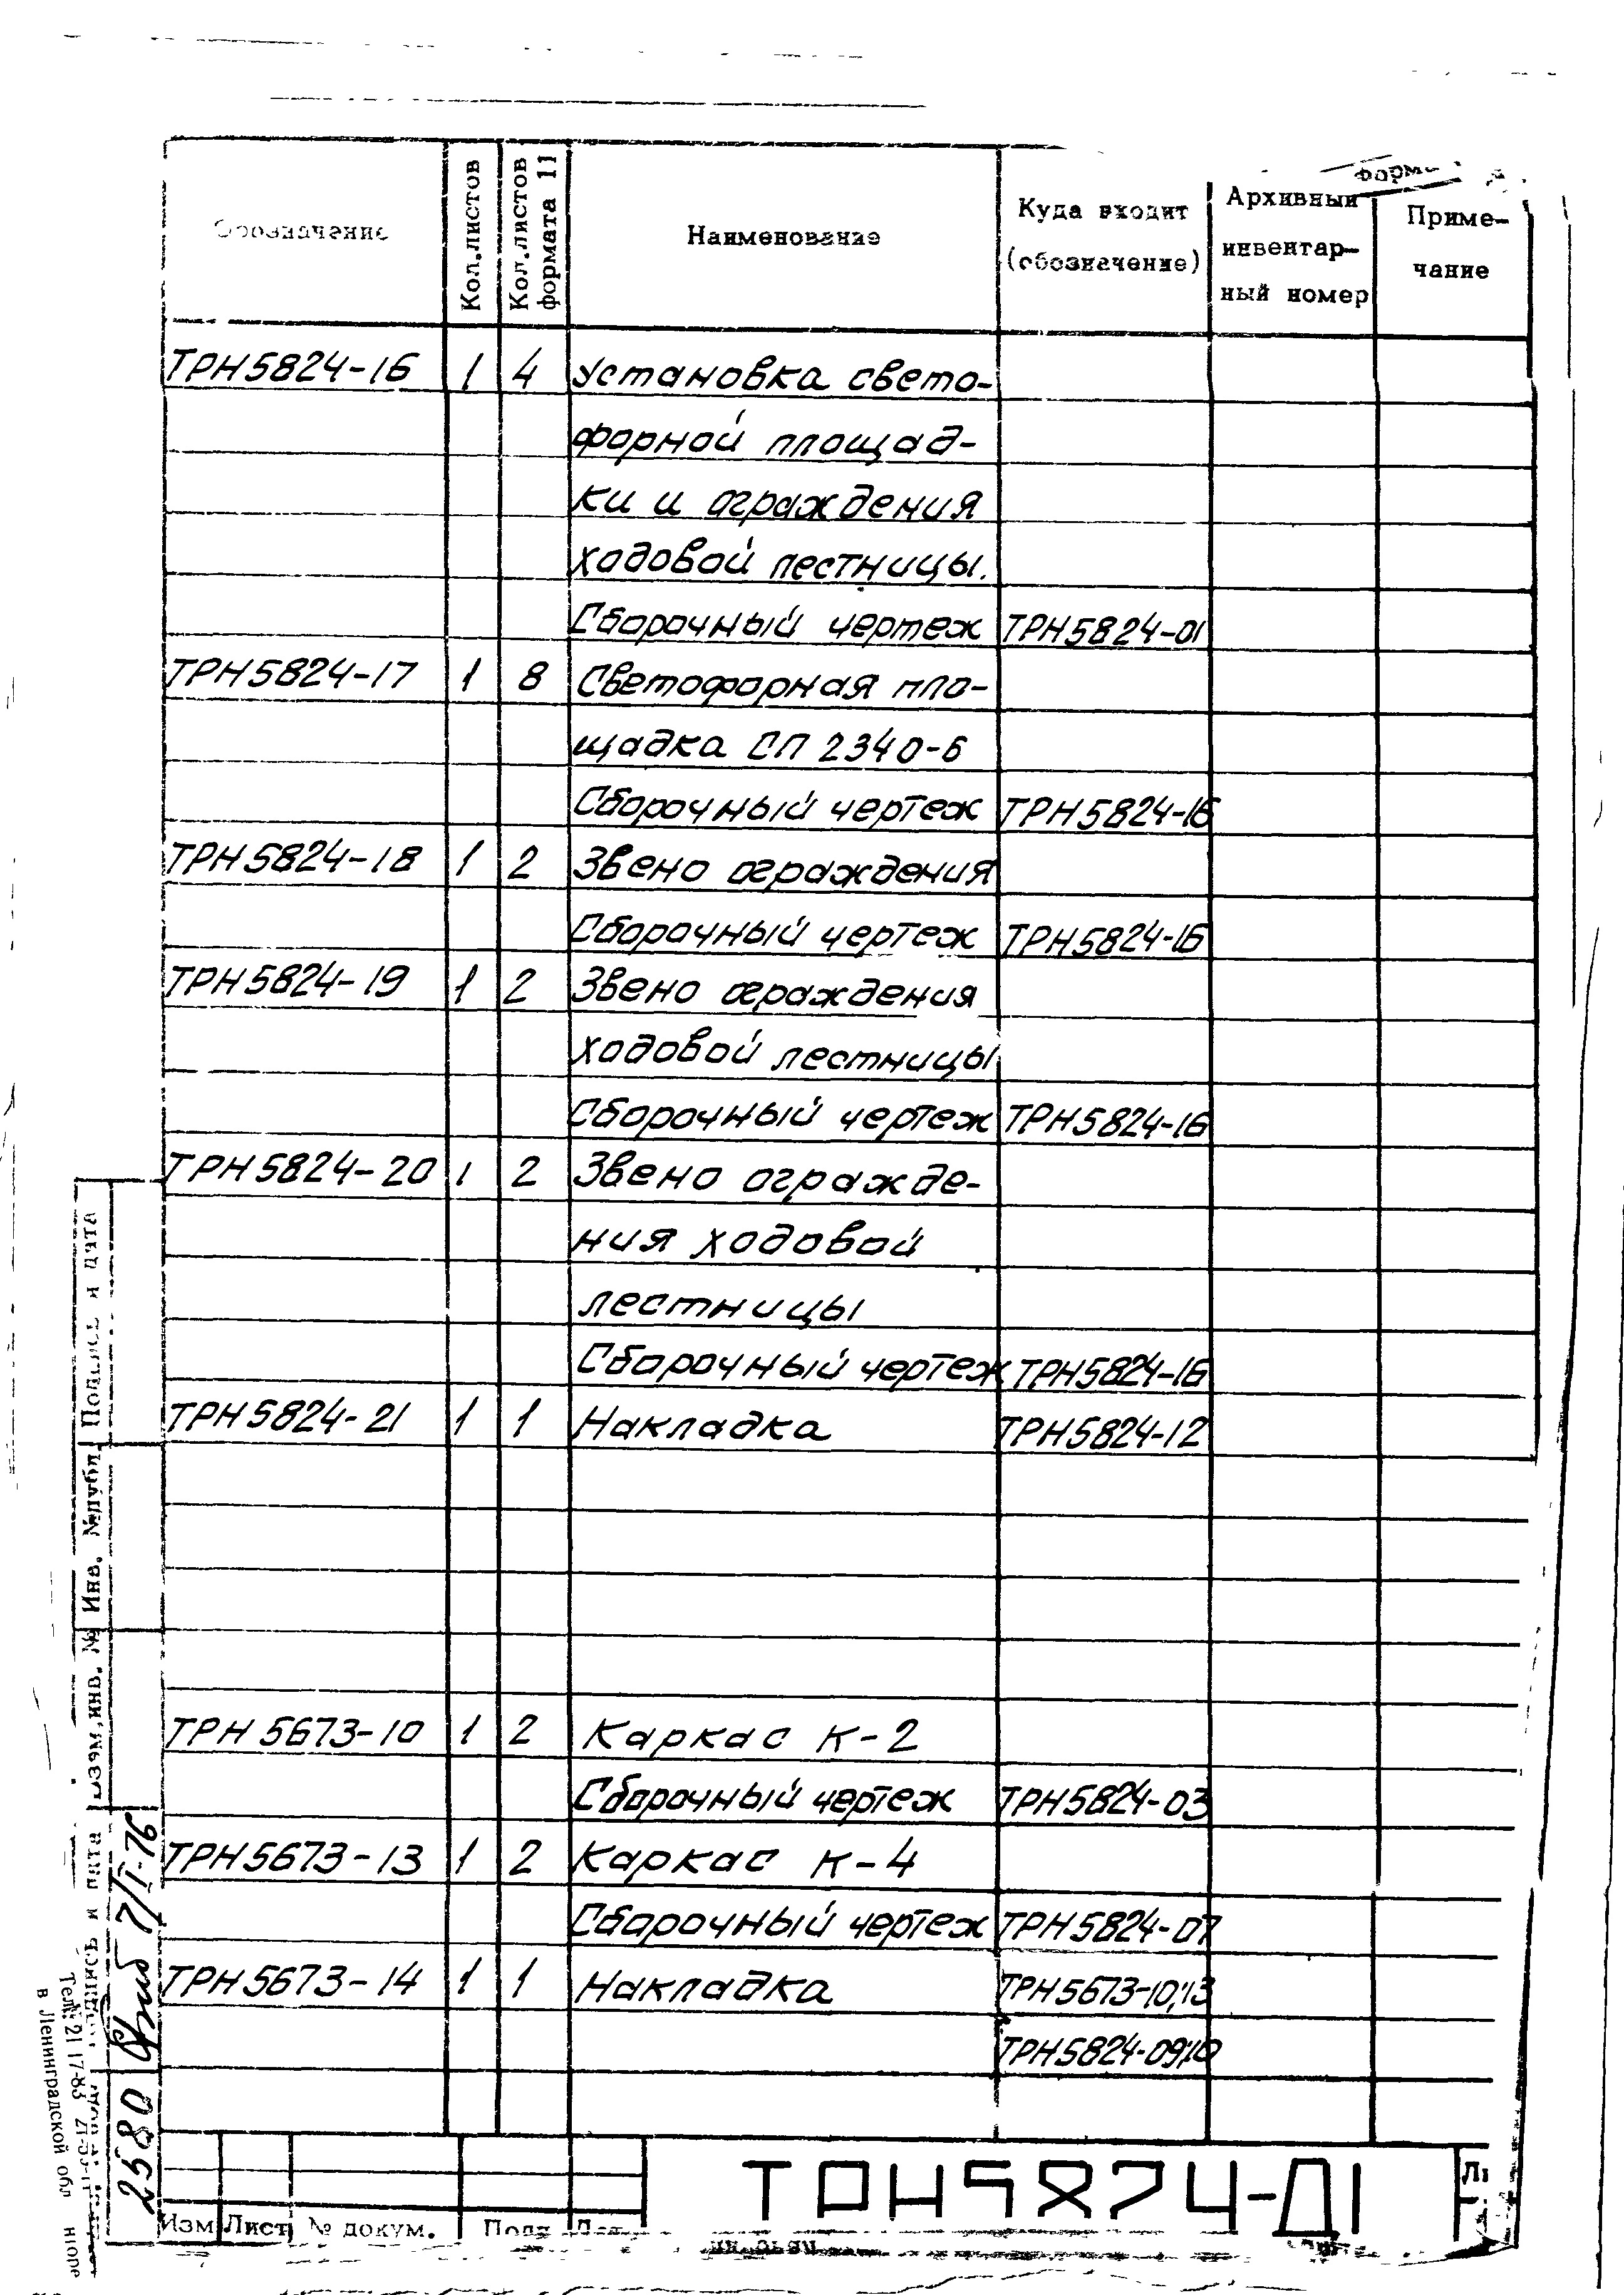 Обозначение
Кол.листов
Кол.листов
формата 11
Наименование
Куда входит
(обозначение)
Архивный
инвентар-
ный номер
Приме-
чание
ТРН5824-16 1 4 Установка свето-
форной площад-
ки и ограждения
ходовой лестницы.
Сборочный чертеж ТРН5824-01
ТРН5824-17 1 8 Светофорная пло-
щадка СП 2340-6
Сборочный чертеж ТРН5824-16
ТРН5824-18 1 2 Звено ограждения
Сборочный чертеж ТРН5824-16
ТРН5824-19 1 2 Звено ограждения
ходовой лестницы
Сборочный чертеж ТРН5824-16
ТРН5824-20 1 2 Звено огражде-
ния ходовой
лестницы
Сборочный чертеж ТРН5824-16
ТРН5824-21 1 1 Накладка ТРН5824-12
ТРН 5673-10 1 2 Каркас К-2
Сборочный чертеж ТРН5824-03
ТРН5673-13 1 2 Каркас К-4
Сборочный чертеж ТРН5824-07
ТРН5673-14 1 1 Накладка ТРН5673-10;13
ТРН5824-09;10
Подпись и дата
Инв. №дубл.
Взам.инв. №
Подпись и дата
7/I-76
2580
в Ленинградской обл
Изм Лист № докум. Подп Дат
ТРН5824-Д1